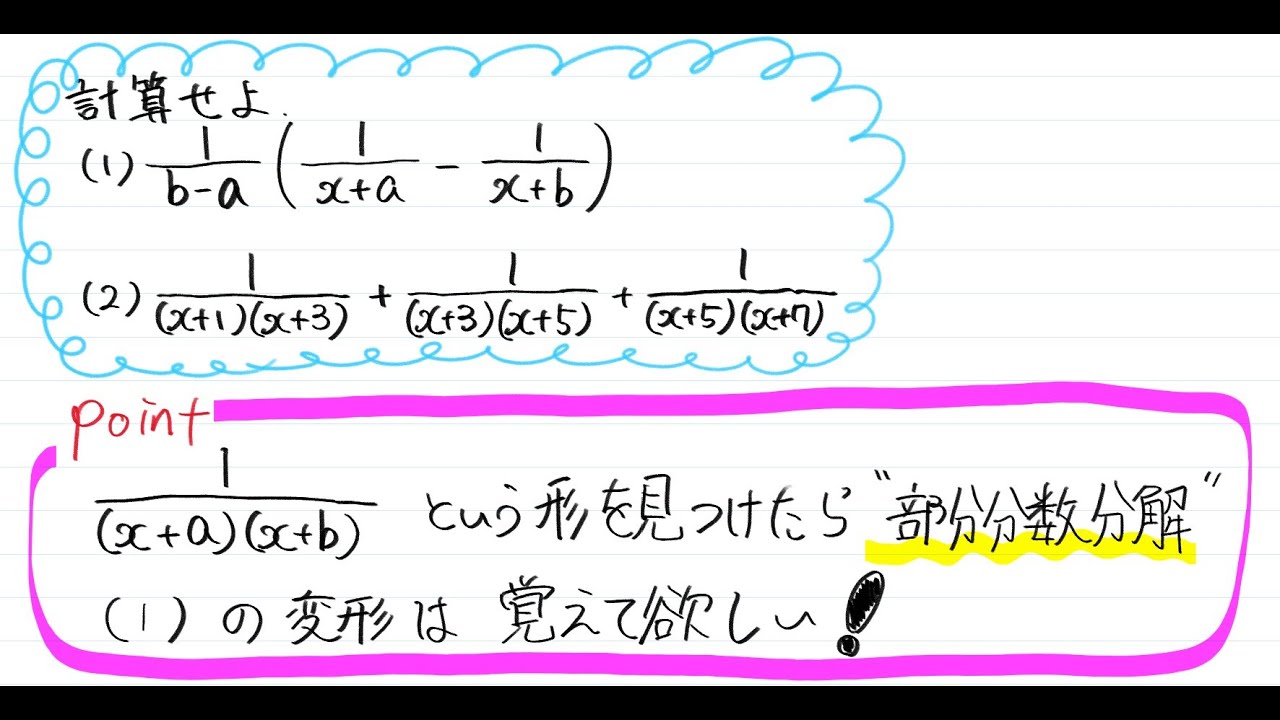 計算せよ.
(1) 1/(b-a) (1/(x+a) - 1/(x+b))
(2) 1/((x+1)(x+3)) + 1/((x+3)(x+5)) + 1/((x+5)(x+7))
point
1/((x+a)(x+b)) という形を見つけたら "部分分数分解"
(1) の変形は 覚えて欲しい!